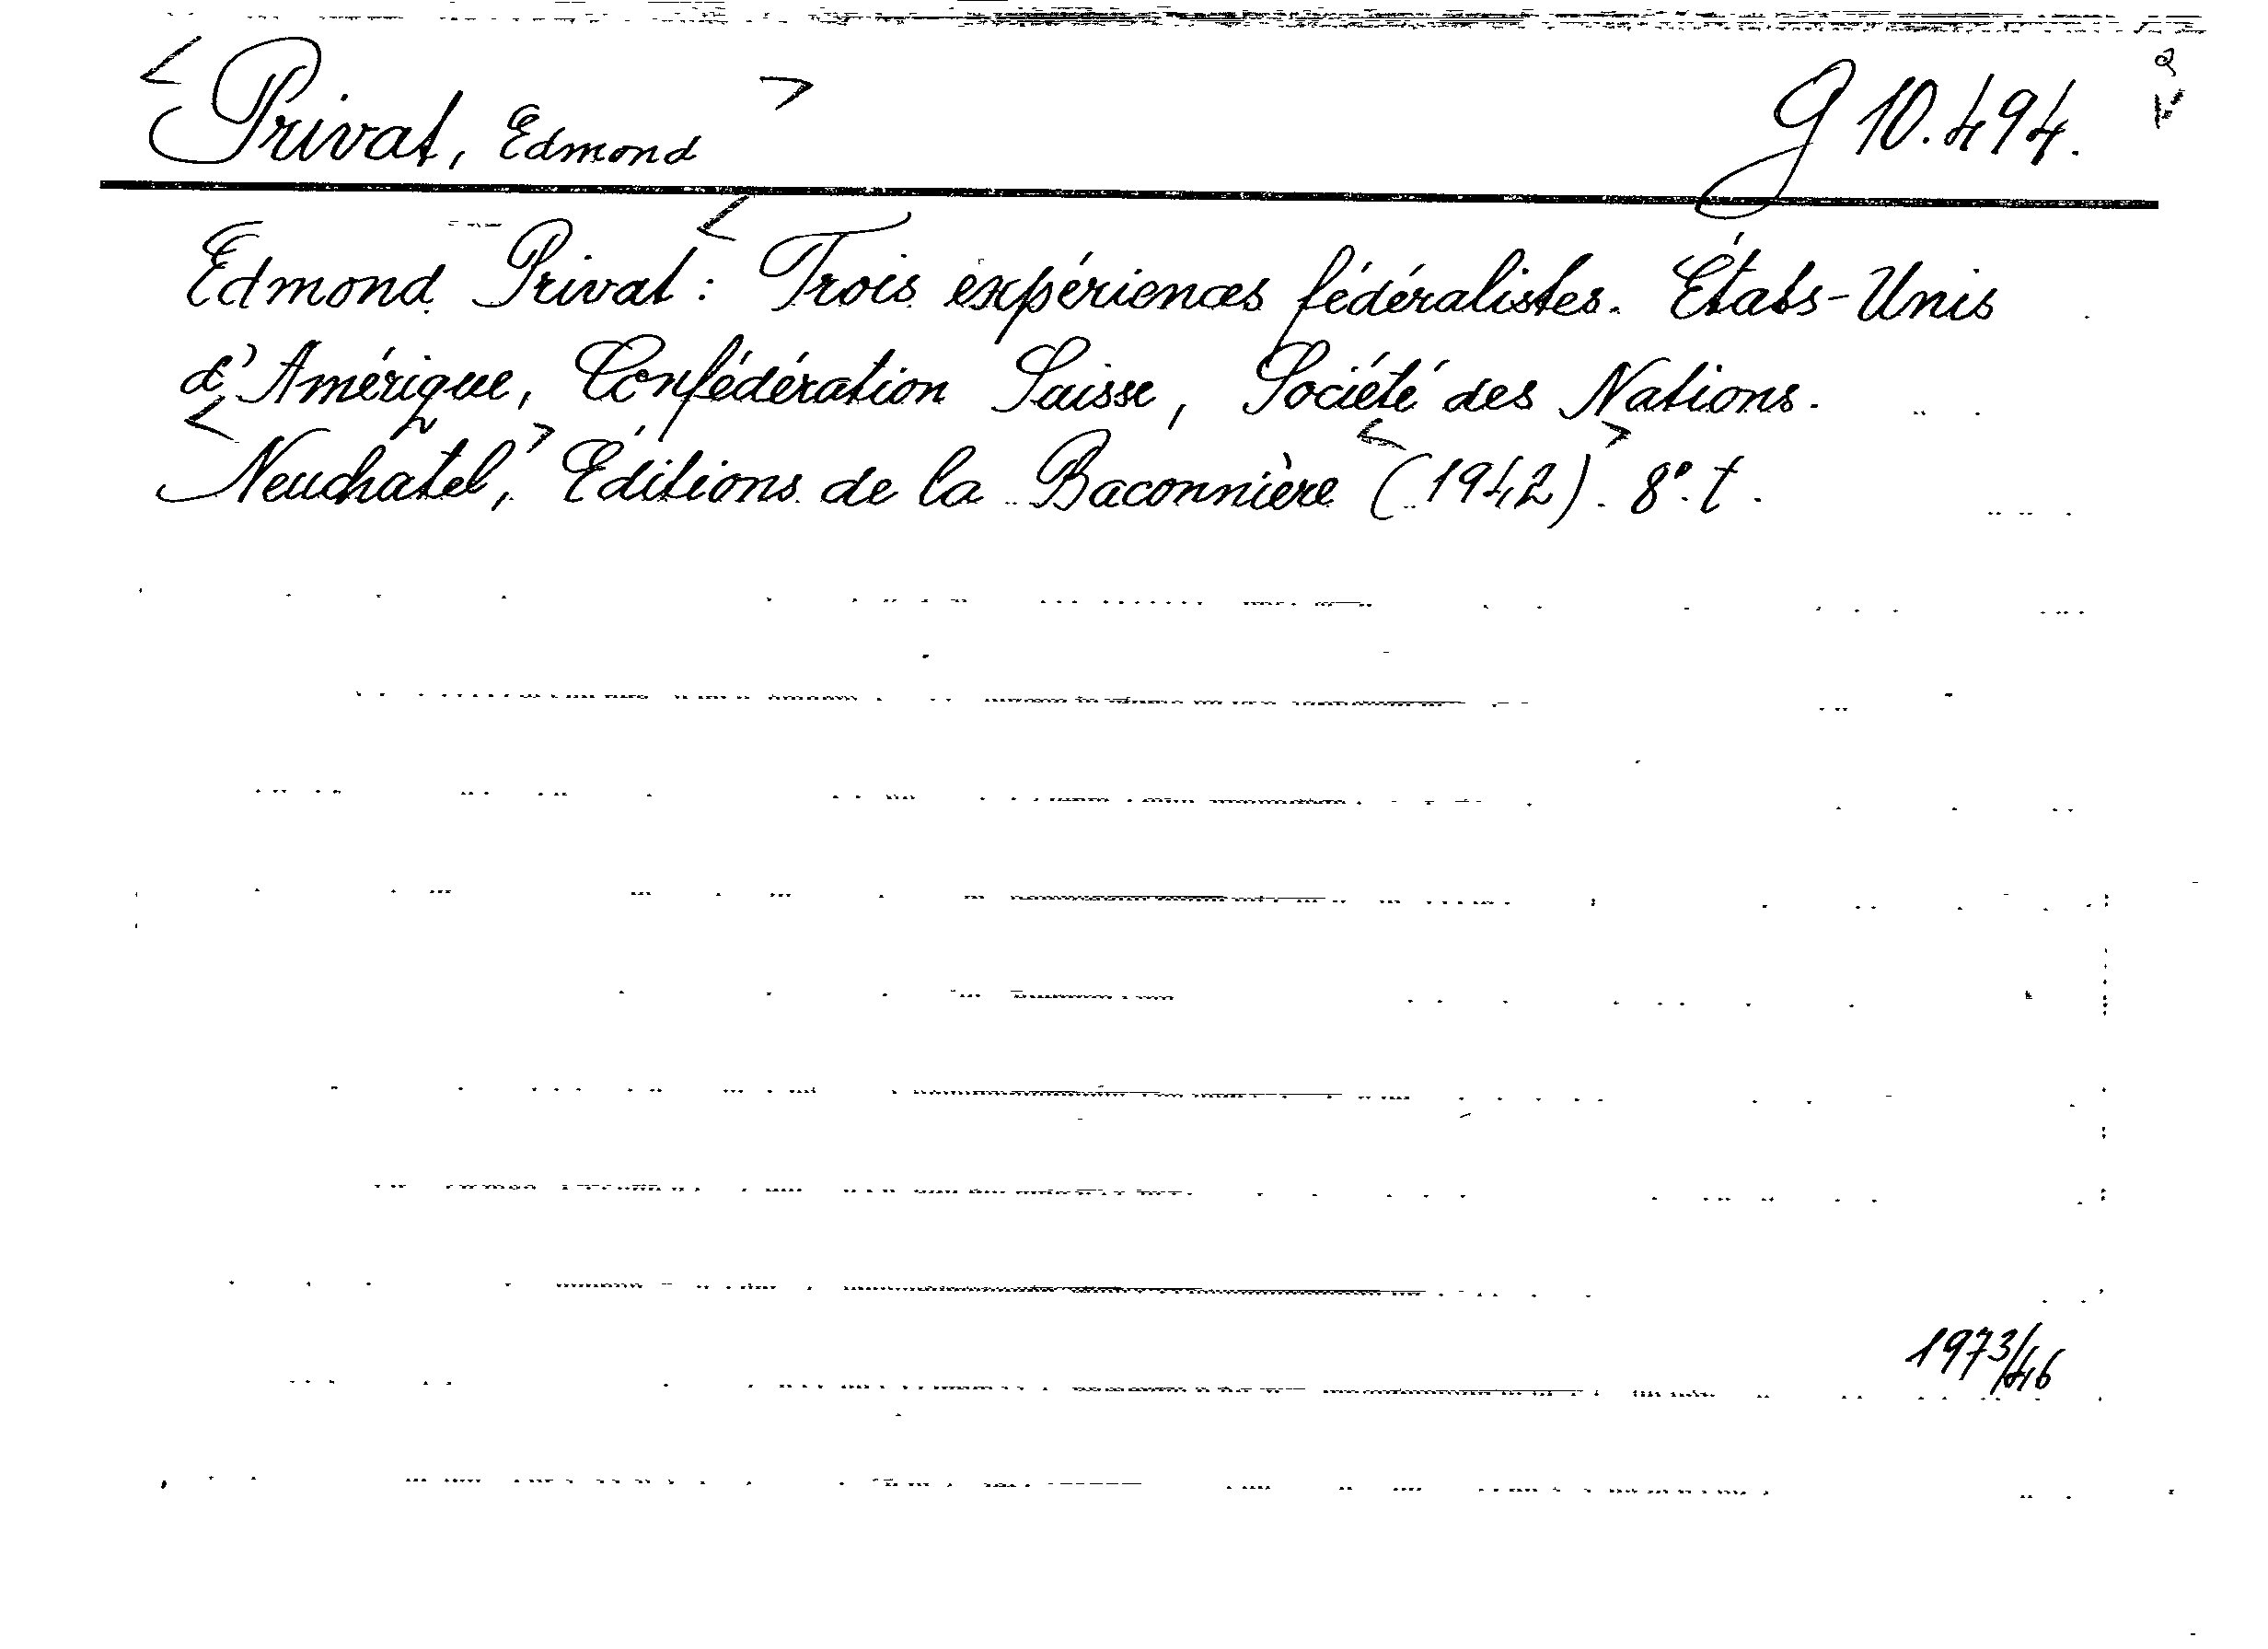 < Privat, Edmond > G 10.494.
Edmond Privat: < Trois expériences fédéralistes. États-Unis
d'Amérique, Confédération Suisse, Société des Nations.
< Neuchâtel, > Éditions de la Baconnière < (1942) >. 8°. t.
1973/46